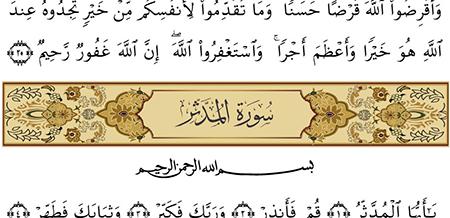 وَأَقْرِضُوا۟ ٱللَّهَ قَرْضًا حَسَنًا وَمَا تُقَدِّمُوا۟ لِأَنفُسِكُم مِّنْ خَيْرٍ تَجِدُوهُ عِندَ
ٱللَّهِ هُوَ خَيْرًا وَأَعْظَمَ أَجْرًا ۚ وَٱسْتَغْفِرُوا۟ ٱللَّهَ ۖ إِنَّ ٱللَّهَ غَفُورٌ رَّحِيمٌۢ ﴿٢٠﴾
سورة المدثر
بسم الله الرحمن الرحيم
يَـٰٓأَيُّهَا ٱلْمُدَّثِّرُ ﴿١﴾ قُمْ فَأَنذِرْ ﴿٢﴾ وَرَبَّكَ فَكَبِّرْ ﴿٣﴾ وَثِيَابَكَ فَطَهِّرْ ﴿٤﴾